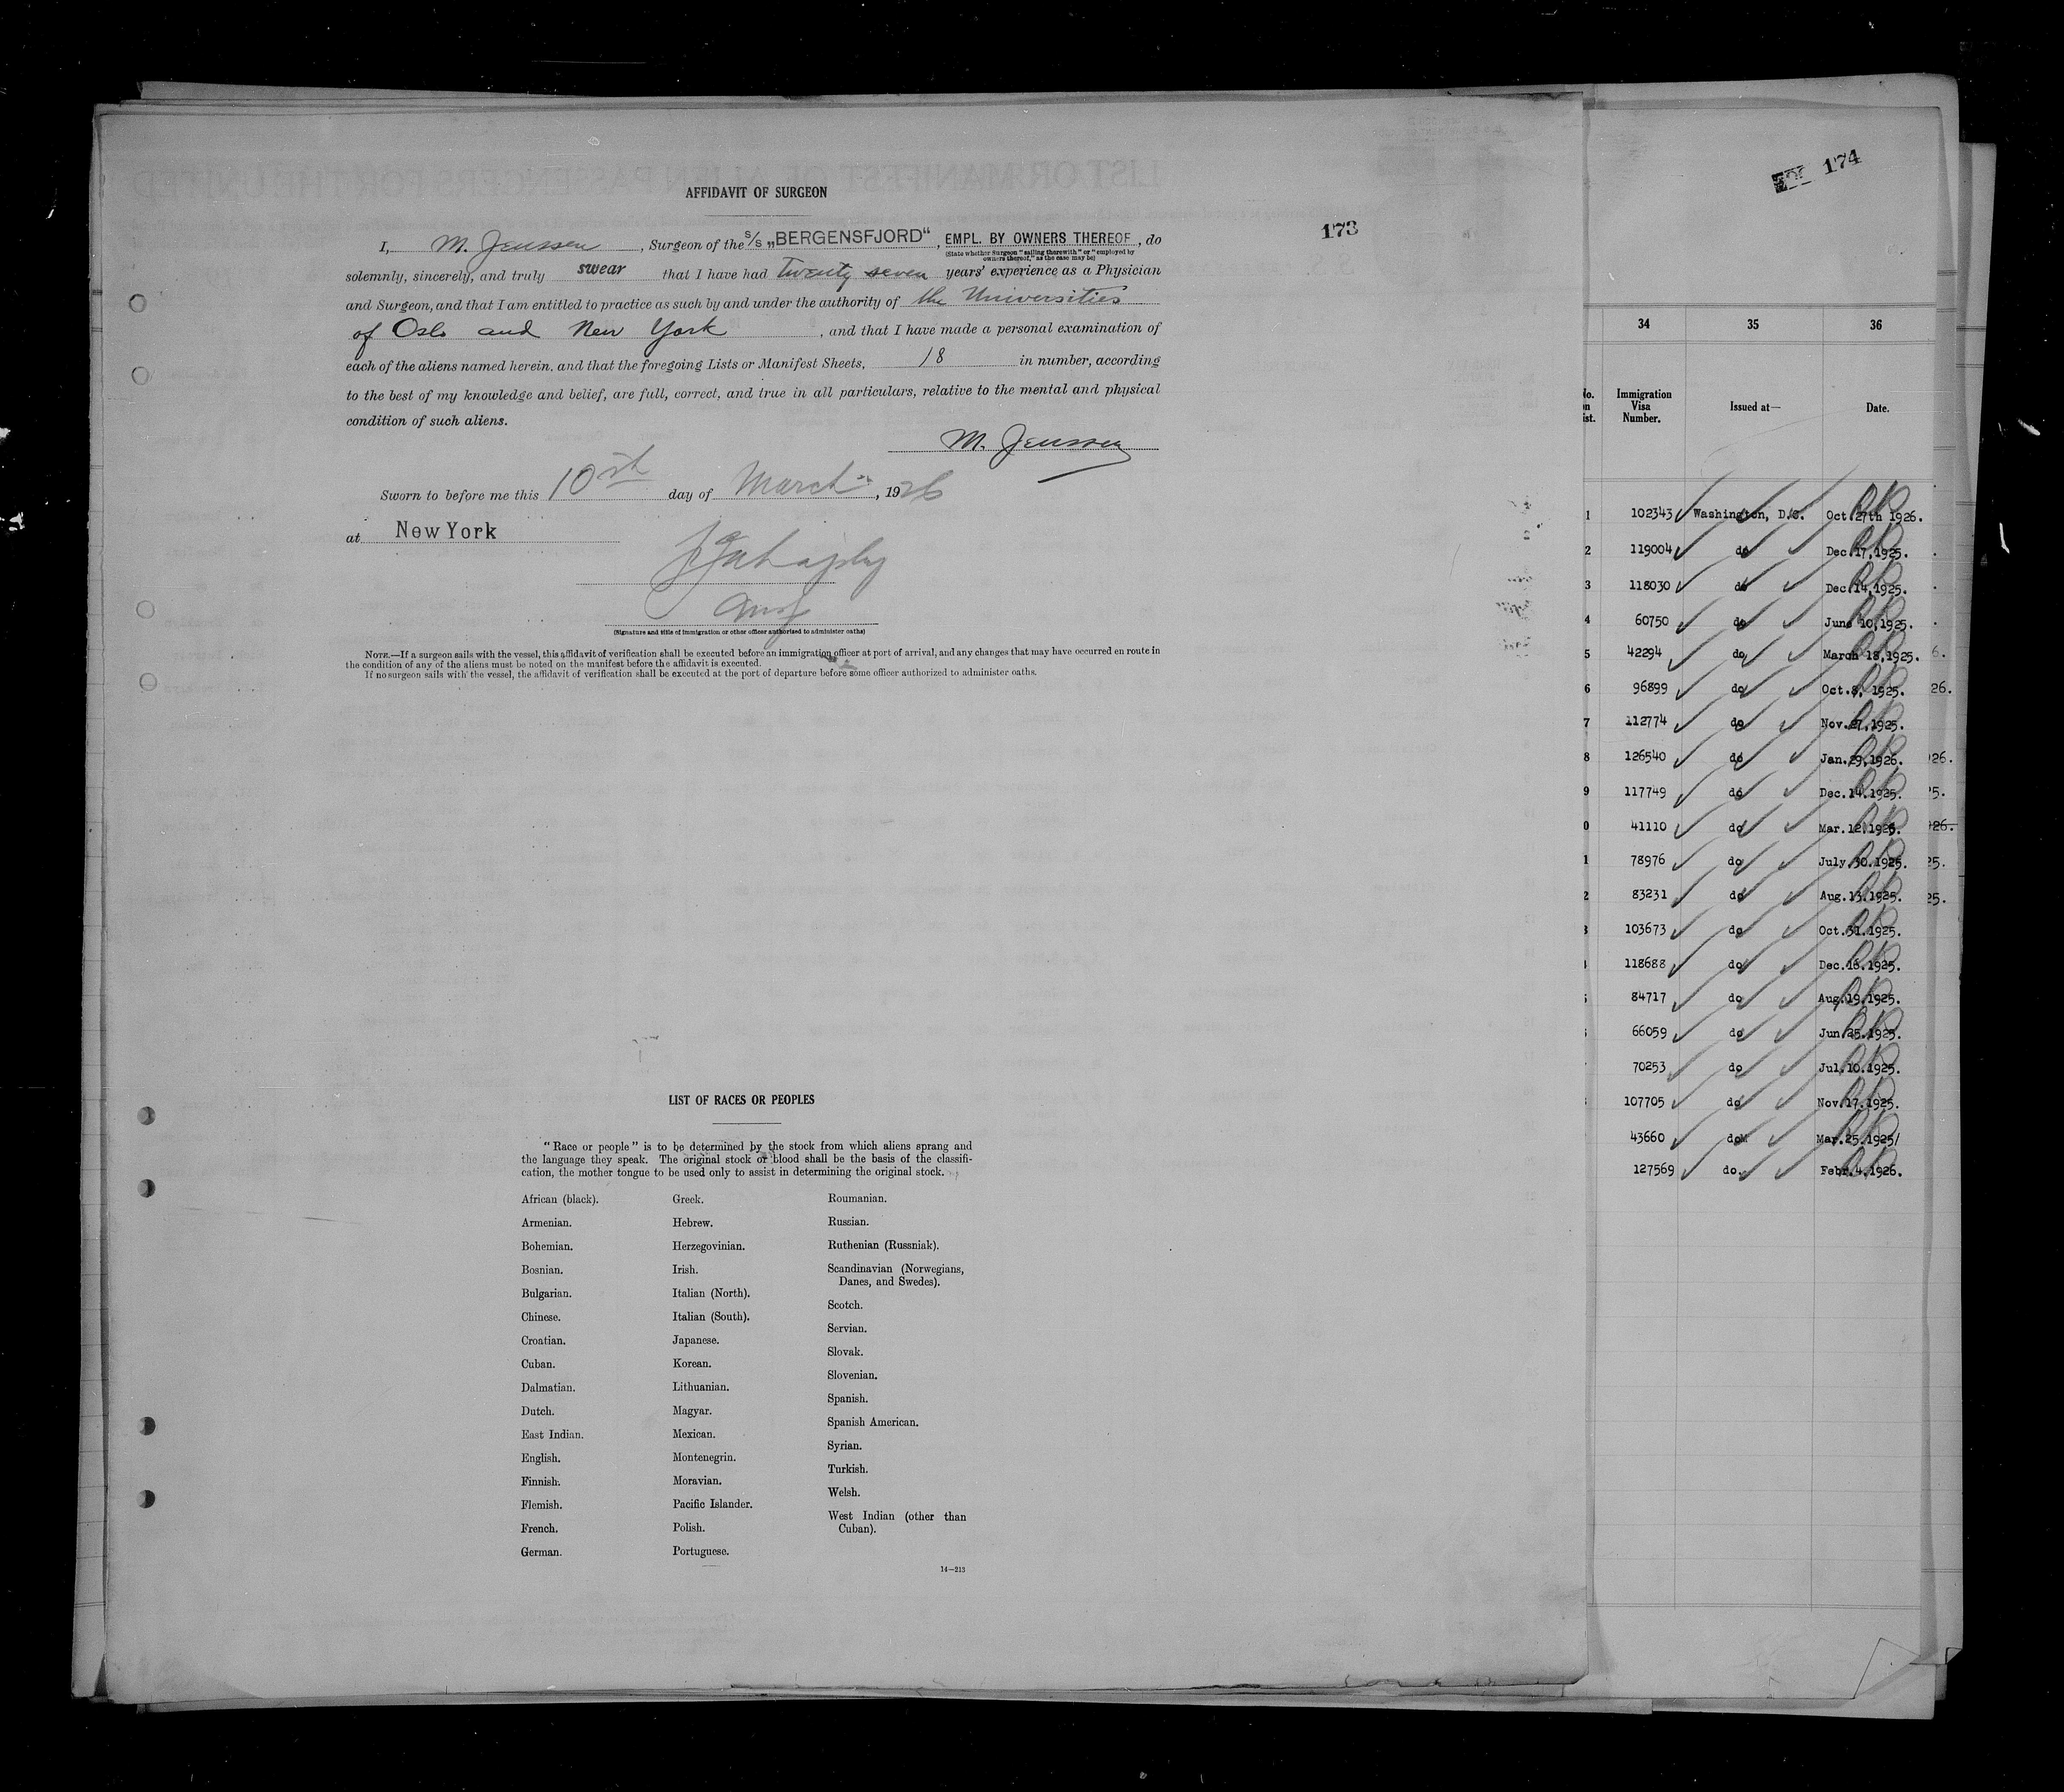 AFFIDAVIT OF SURGEON
173
I, M. Jenssen, Surgeon of the S/S „BERGENSFJORD“, EMPL. BY OWNERS THEREOF, do
(State whether Surgeon “sailing therewith” or “employed by
owners thereof,” as the case may be)
solemnly, sincerely, and truly swear that I have had twenty seven years' experience as a Physician
and Surgeon, and that I am entitled to practice as such by and under the authority of the Universities
of Oslo and New York, and that I have made a personal examination of
each of the aliens named herein, and that the foregoing Lists or Manifest Sheets, 18 in number, according
to the best of my knowledge and belief, are full, correct, and true in all particulars, relative to the mental and physical
condition of such aliens.
M. Jenssen
Sworn to before me this 10th day of March, 1926
at New York
(Signature and title of immigration or other officer authorized to administer oaths)
NOTE.—If a surgeon sails with the vessel, this affidavit of verification shall be executed before an immigration officer at port of arrival, and any changes that may have occurred en route in
the condition of any of the aliens must be noted on the manifest before the affidavit is executed.
If no surgeon sails with the vessel, the affidavit of verification shall be executed at the port of departure before some officer authorized to administer oaths.
LIST OF RACES OR PEOPLES
“Race or people” is to be determined by the stock from which aliens sprang and
the language they speak. The original stock or blood shall be the basis of the classifi-
cation, the mother tongue to be used only to assist in determining the original stock.
African (black).
Armenian.
Bohemian.
Bosnian.
Bulgarian.
Chinese.
Croatian.
Cuban.
Dalmatian.
Dutch.
East Indian.
English.
Finnish.
Flemish.
French.
German.
Greek.
Hebrew.
Herzegovinian.
Irish.
Italian (North).
Italian (South).
Japanese.
Korean.
Lithuanian.
Magyar.
Mexican.
Montenegrin.
Moravian.
Pacific Islander.
Polish.
Portuguese.
Roumanian.
Russian.
Ruthenian (Russniak).
Scandinavian (Norwegians,
Danes, and Swedes).
Scotch.
Servian.
Slovak.
Slovenian.
Spanish.
Spanish American.
Syrian.
Turkish.
Welsh.
West Indian (other than
Cuban).
14—213
174
34 35 36
Immigration
Visa
Number.
Issued at—
Date.
1 102343 Washington, D.C. Oct.27th 1926.
2 119004 do Dec.17,1925.
3 118030 do Dec.14,1925.
4 60750 do June 10,1925.
5 42294 do March 18,1925.
6 96899 do Oct.8, 1925.
7 112774 do Nov.27,1925.
8 126540 do Jan.29,1926.
9 117749 do Dec.14.1925.
0 41110 do Mar.12.1925.
1 78976 do July.30.1925.
2 83231 do Aug.13.1925.
3 103673 do Oct.31.1925.
118688 do Dec.16.1925.
84717 do Aug.19.1925.
66059 do Jun.25.1925.
70253 do Jul.10.1925.
107705 do Nov.17.1925.
43660 do Mar.25.1925/
127569 do. Febr.4.1926.